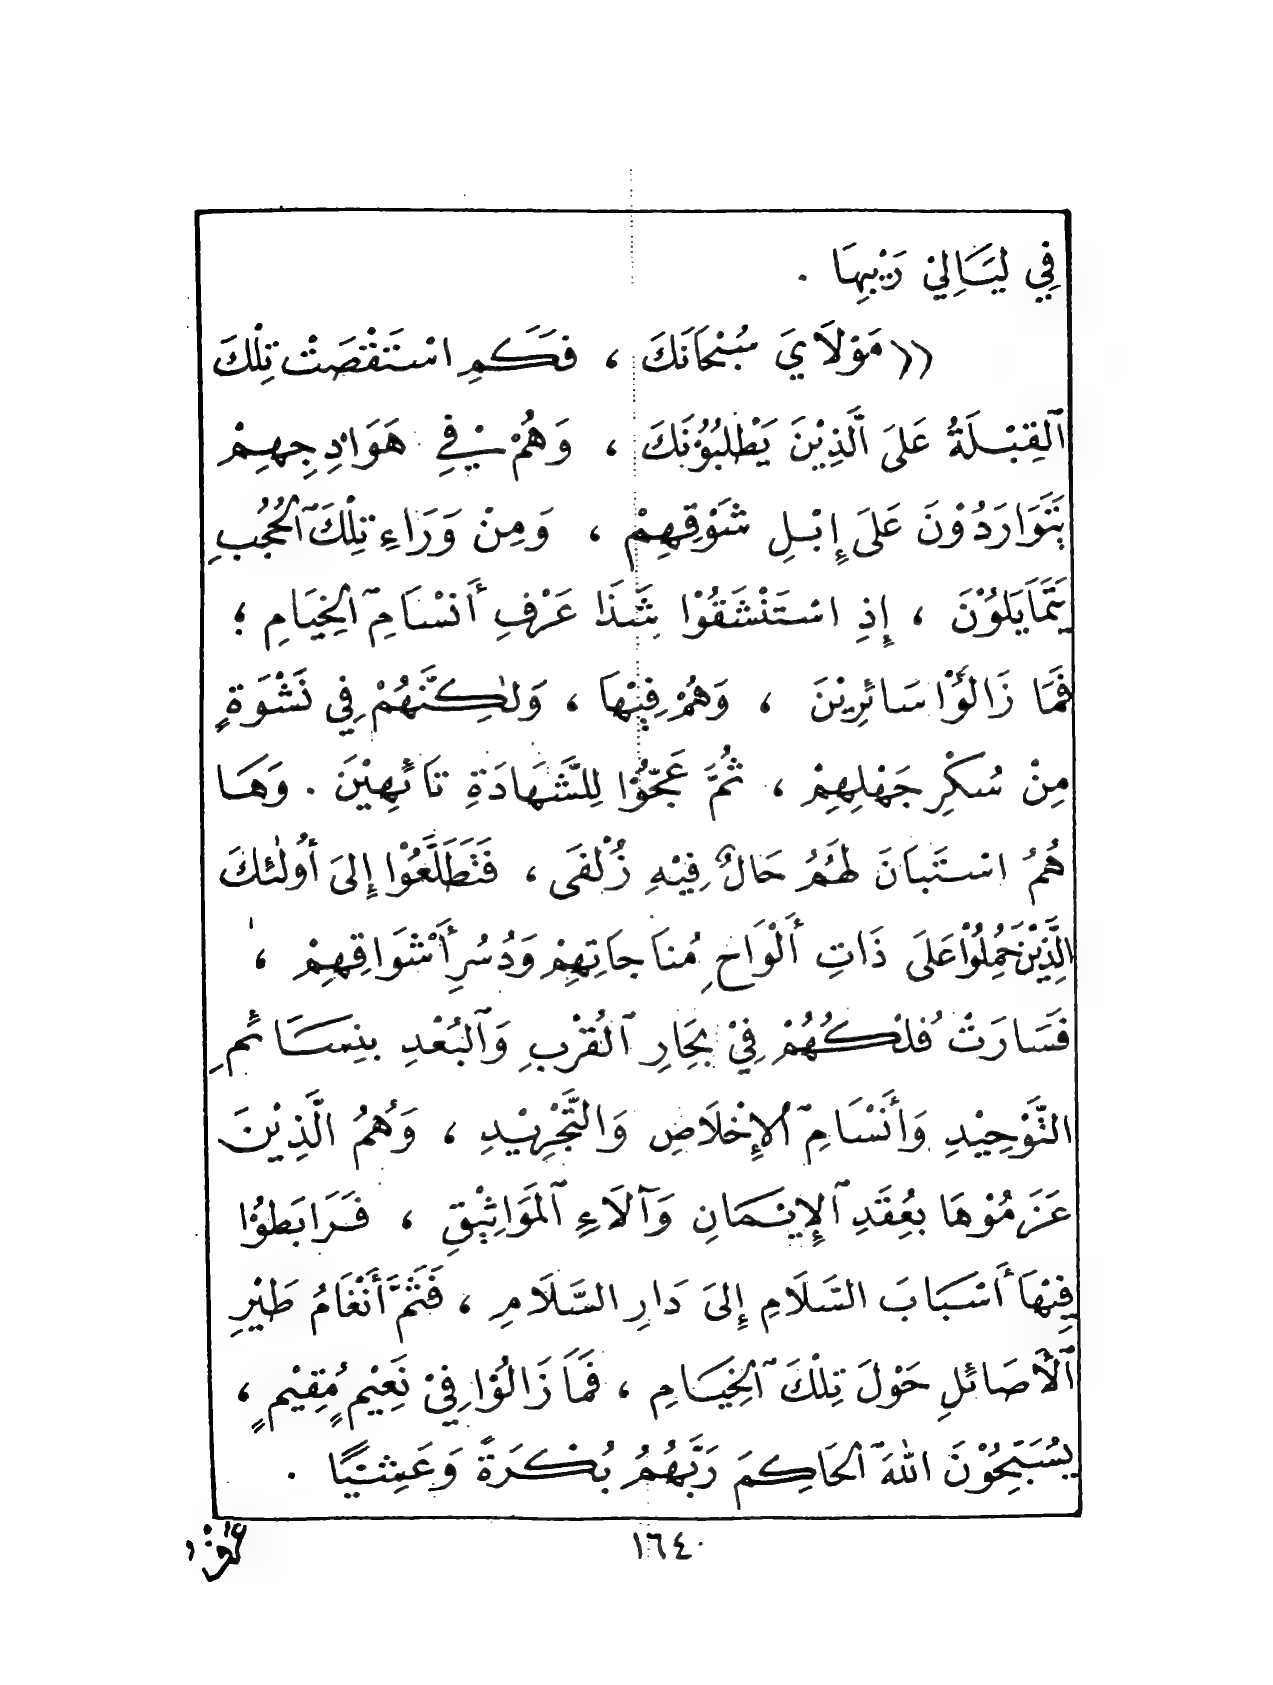 فِي لَيَالِيْ رَيْبِهَا .
(( مَوْلَايَ سُبْحَانَكَ ، فَكَمِ اسْتَقْصَتْ تِلْكَ
ٱلقِبْلَةُ عَلَى الَّذِيْنَ يَطْلُبُوْنَكَ ، وَهُمْ فِي هَوَادِجِهِمْ
يَتَوَارَدُوْنَ عَلَى إِبْلِ شَوْقِهِمْ ، وَمِنْ وَرَاءِ تِلْكَ ٱلحُجُبِ
يَتَمَايَلُوْنَ ، إِذِ اسْتَنْشَقُوْا شَذَا عَرْفِ أَنْسَامِ ٱلخِيَامِ ؛
فَمَا زَالُوْا سَائِرِيْنَ ، وَهُمْ فِيْهَا ، وَلٰكِنَّهُمْ فِي نَشْوَةٍ
مِنْ سُكْرِ جَهْلِهِمْ ، ثُمَّ عَجُّوْا لِلشَّهَادَةِ تَائِهِيْنَ . وَهَا
هُمُ اسْتَبَانَ لَهُمُ حَالٌ فِيْهِ زُلْفَى ، فَتَطَلَّعُوْا إِلَى أُولٰئِكَ
الَّذِيْنَ حُمِلُوْا عَلَى ذَاتِ أَلْوَاحِ مُنَاجَاتِهِمْ وَدُسُرِ أَشْوَاقِهِمْ ،
فَسَارَتْ فُلْكُهُمْ فِيْ بِحَارِ ٱلقُرْبِ وَٱلبُعْدِ بِنِسَائِمِ
التَّوْحِيْدِ وَأَنْسَامِ ٱلإِخْلَاصِ وَالتَّجْرِيْدِ ، وَهُمُ الَّذِيْنَ
عَزَمُوْهَا بِعُقَدِ ٱلإِيْمَانِ وَآلَاءِ ٱلمَوَاثِيْقِ ، فَرَابَطُوْا
فِيْهَا أَسْبَابَ السَّلَامِ إِلَى دَارِ السَّلَامِ ، فَثَمَّ أَنْغَامُ طَيْرِ
ٱلأَصَائِلِ حَوْلَ تِلْكَ ٱلخِيَامِ ، فَمَا زَالُوْا فِيْ نَعِيْمٍ مُقِيْمٍ ،
يُسَبِّحُوْنَ اللهَ ٱلحَاكِمَ رَبَّهُمُ بُكْرَةً وَعَشِيًّا .
١٦٤٠